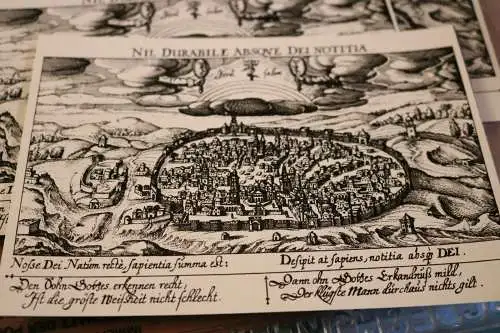 NIL DURABILE ABSQVE DEI NOTITIA
Nosse Dei Natum rectè sapientia summa est:
Desipit at sapiens, notitia absq; DEI.
Den Sohn Gottes erkennen recht,
Ist die gröste Weißheit nicht schlecht.
Dann ohn Gottes Erkandnüß mild,
Der klügste Mann durchaus nichts gilt.